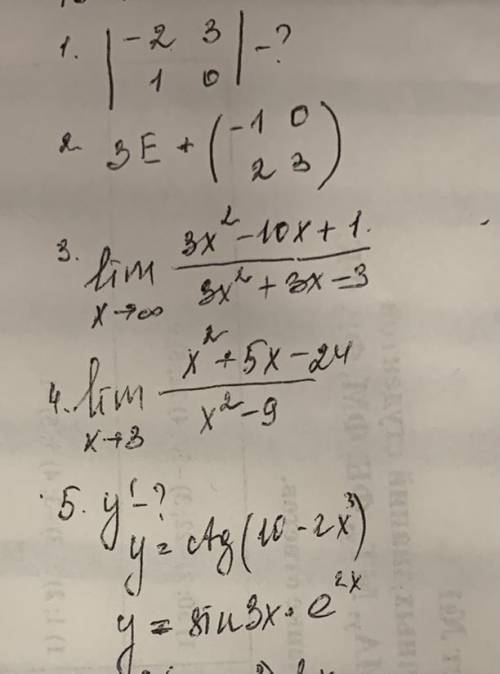 1. | -2 3 | - ?
| 1 0 |
2. 3E + ( -1 0 )
( 2 3 )
3. lim 3x² - 10x + 1.
x→∞ 3x² + 3x - 3
4. lim x² + 5x - 24
x→3 x² - 9
5. y' - ?
y = ctg(10 - 2x³)
y = sin3x · e^2x